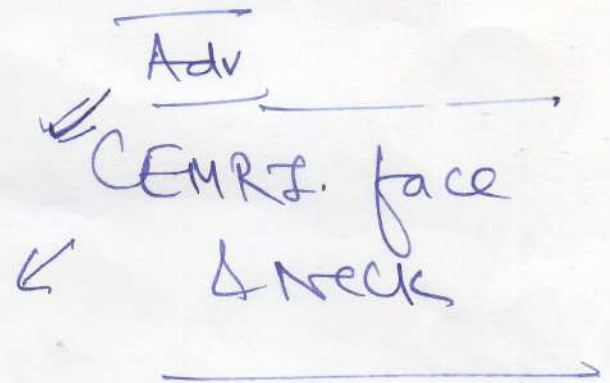 Adv
CEMRI. face
& Neck